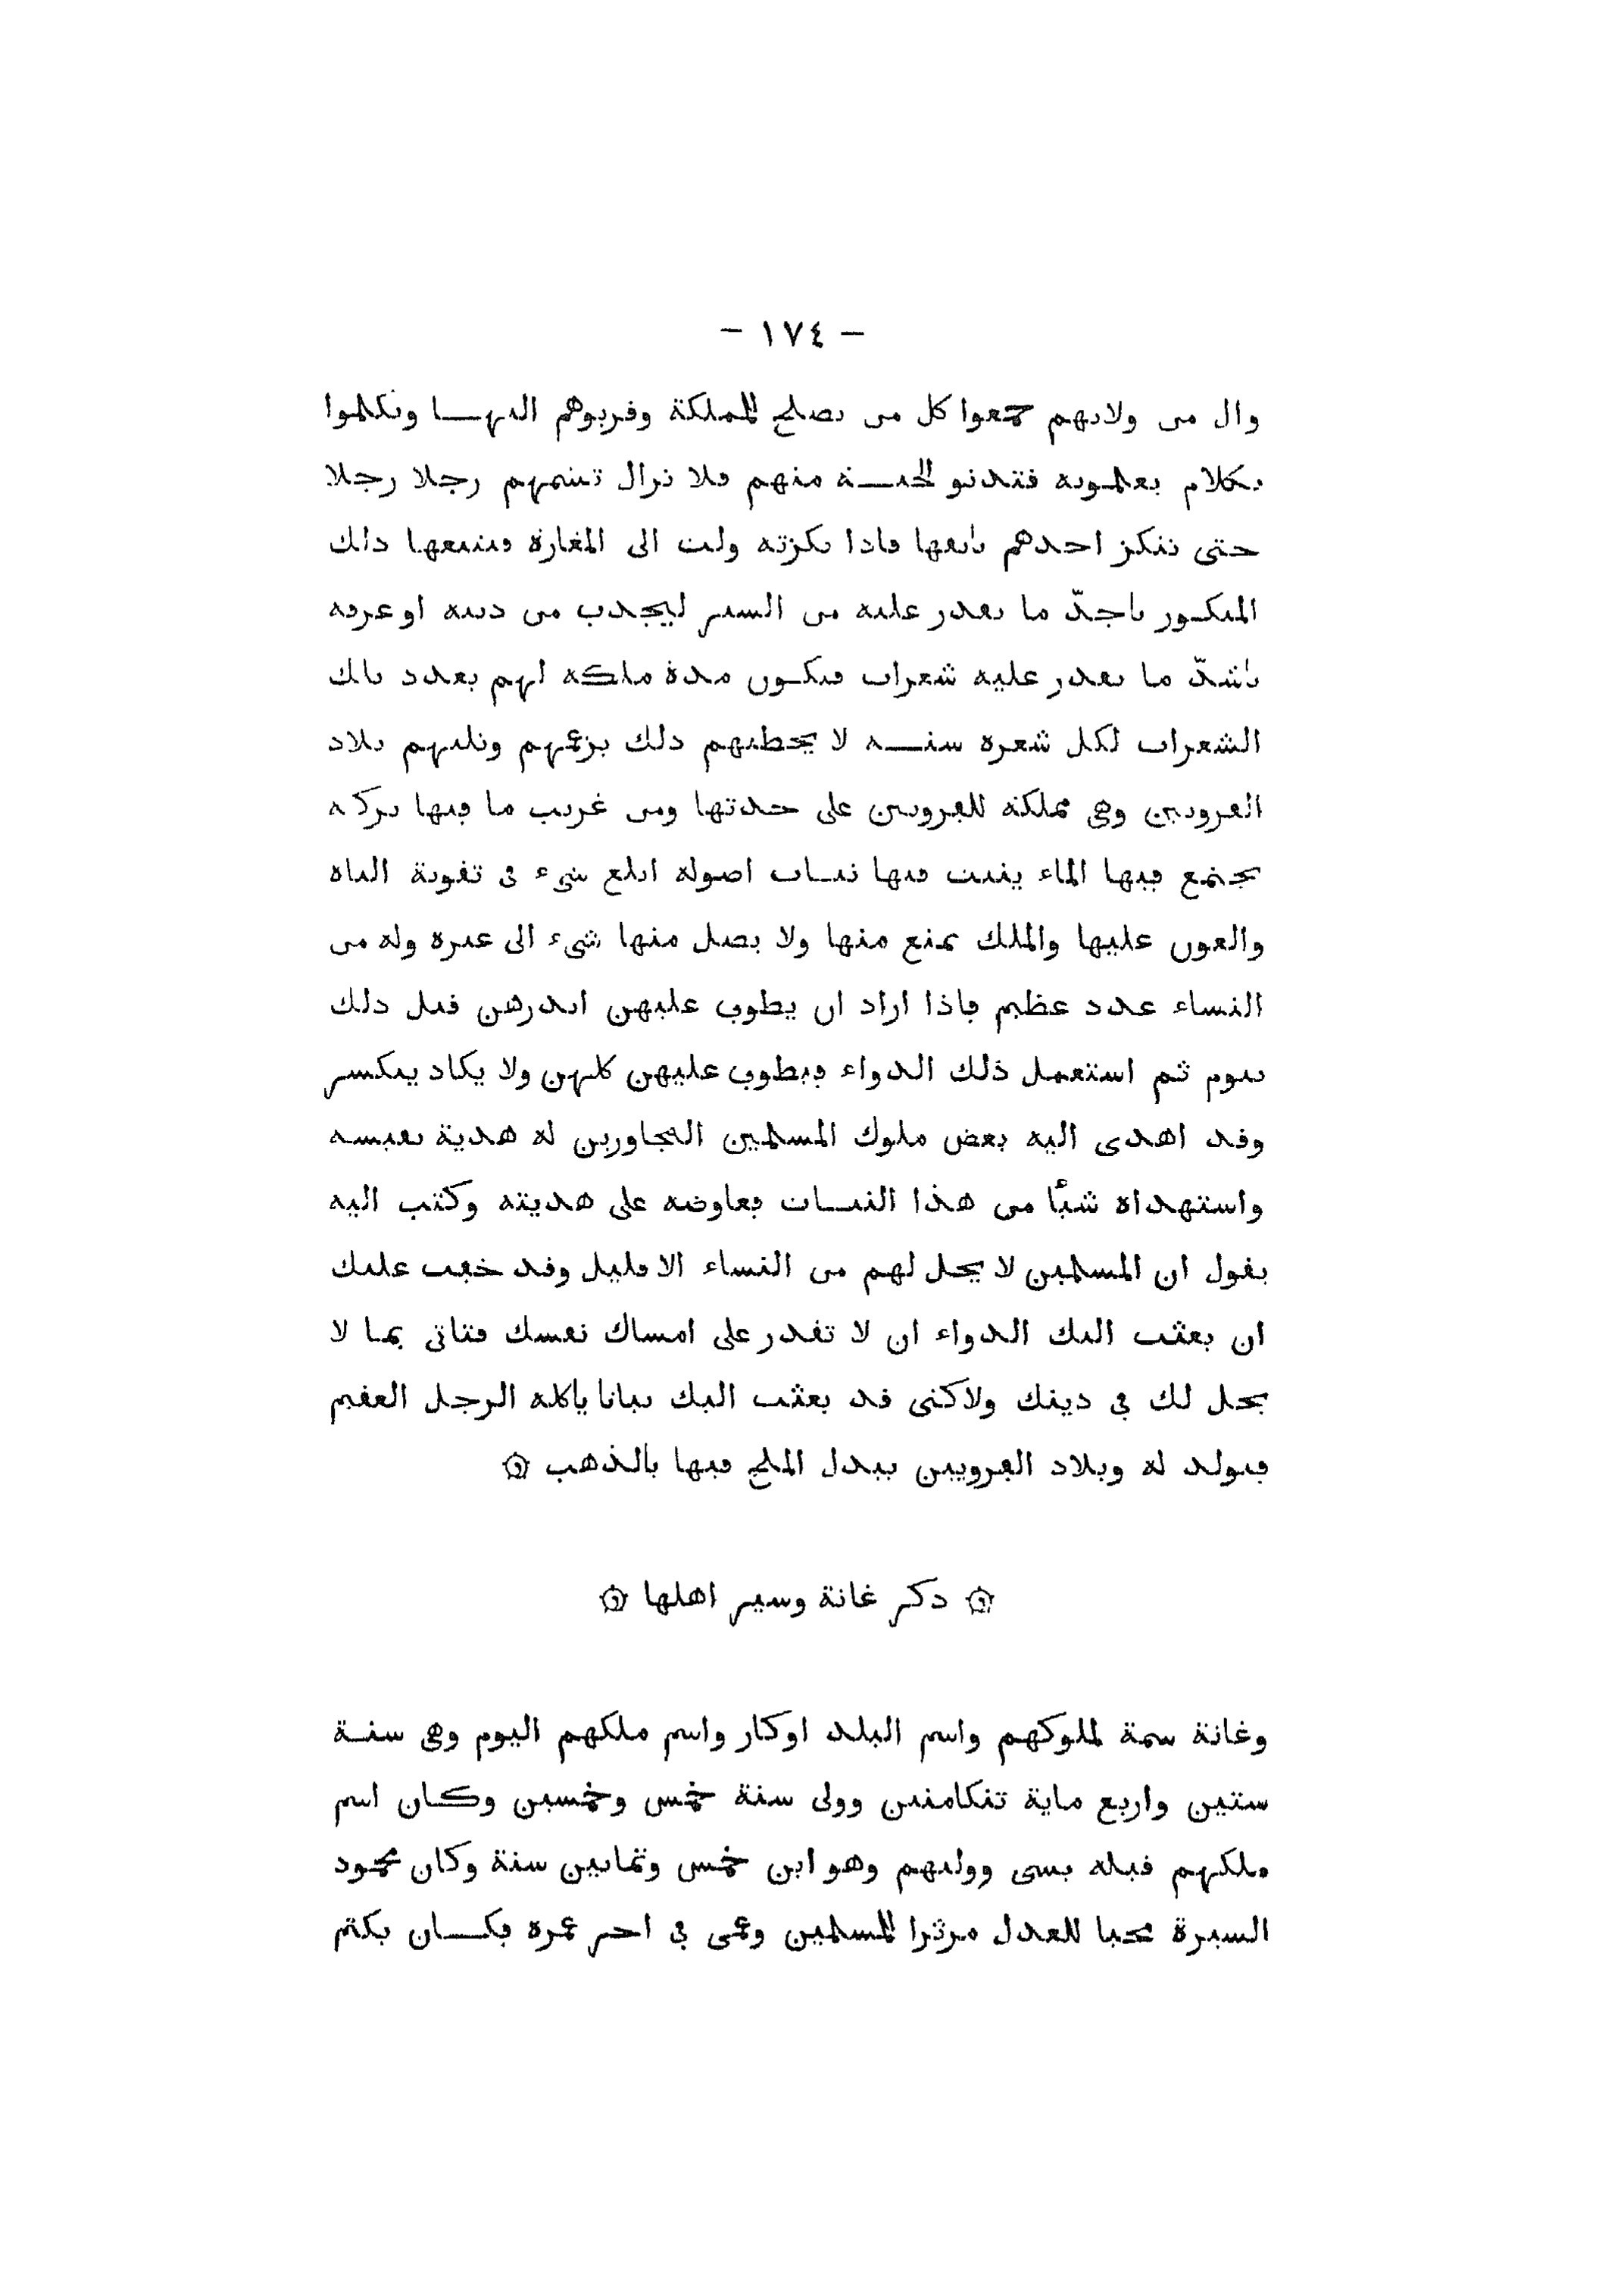 - ١٧٤ -
وال من ولاتهم جمعوا كل من يصلح للمملكة وقربوهم اليها وتكلموا
بكلام يعلمونه فتدنو الحية منهم فلا تزال تشمهم رجلا رجلا
حتى تنكز احدهم بانفها فاذا نكزته ولت الى المغارة فيتبعها ذلك
المنكور باجدّ ما يقدر عليه من السير ليجذب من ذنبه او عرفه
باشدّ ما يقدر عليه شعرات فيكون مدة ملكه لهم بعدد تلك
الشعرات لكل شعرة سنة لا يخطيهم ذلك بزعمهم وتليهم بلاد
الفرويين وهي مملكة للفرويين على حدتها ومن غريب ما فيها بركة
يجتمع فيها الماء ينبت فيها نبات اصوله ابلغ شيء في تقوية الباه
والعون عليها والملك يمنع منها ولا يصل منها شيء الى غيره وله من
النساء عدد عظيم فاذا اراد ان يطوف عليهن انذرهن قبل ذلك
بيوم ثم استعمل ذلك الدواء فيطوف عليهن كلهن ولا يكاد ينكسر
وقد اهدى اليه بعض ملوك المسلمين المجاورين له هدية نفيسة
واستهداه شيأ من هذا النبات فعاوضه على هديته وكتب اليه
يقول ان المسلمين لا يحل لهم من النساء الا قليل وقد خفت عليك
ان بعثت اليك الدواء ان لا تقدر على امساك نفسك فتاتى بما لا
يحل لك في دينك ولاكنى قد بعثت اليك نباتا ياكله الرجل العقيم
فيولد له وبلاد الفرويين يبدل الملح فيها بالذهب ۞
۞ ذكر غانة وسير اهلها ۞
وغانة سمة لملوكهم واسم البلد اوكار واسم ملكهم اليوم وهى سنة
ستين واربع ماية تنكامنين وولى سنة خمس وخمسين وكان اسم
ملكهم قبله بسى ووليهم وهو ابن خمس وثمانين سنة وكان محمود
السيرة محبا للعدل مرثرا للمسلمين وعمى في اخر عمره فكان يكتم